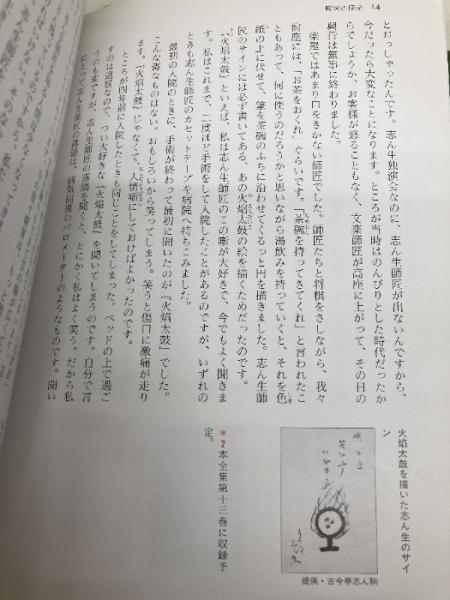 14
とおっしゃったんです。志ん生独演会なのに、志ん生師匠が出ないんですから、
今だったら大変なことになります。ところが当時はのんびりとした時代だったか
らでしょうか、お客様が怒ることもなく、文楽師匠が高座に上がって、その日の
興行は無事に終わりました。
楽屋ではあまり口をきかない師匠でした。師匠たちと将棋をさしながら、我々
前座には、「お茶をおくれ」ぐらいです。「茶碗を持ってきてくれ」と言われたこ
ともあって、何に使うのだろうかと思いながら湯飲みを持っていくと、それを色
紙の上に伏せて、筆を茶碗のふちに沿わせてくるっと円を描きました。志ん生師
匠のサインには必ず書いてある、あの火焰太鼓の絵を描くためだったのです。
『火焰太鼓』といえば、私は志ん生師匠のこの噺が大好きで、今でもよく聞きま
す。私はこれまで、二度ほど手術をして入院したことがあるのですが、いずれの
ときも志ん生師匠のカセットテープを病院へ持ちこみました。
最初の入院のときに、手術が終わって最初に聞いたのが『火焰太鼓』でした。
こんな毒なものはない。おもしろいから笑ってしまう。笑うと傷口に激痛が走り
ます。『火焰太鼓』じゃなくて、人情噺にしておけばよかったのです。
ところが四年前に入院したときも同じことをしてしまった。ベッドの上で過ご
すのは退屈なので、つい大好きな『火焰太鼓』を聞いてしまうのです。自分で言
うのも変ですが、志ん生師匠の落語を聞くと、とにかく私はよく笑う。だから私
にとって志ん生師匠の落語は、病気回復のバロメーターのようなものです。聞い
火焰太鼓を描いた志ん生のサイ
ン
提供・古今亭志ん駒
*2 本全集第十三巻に収録予
定。